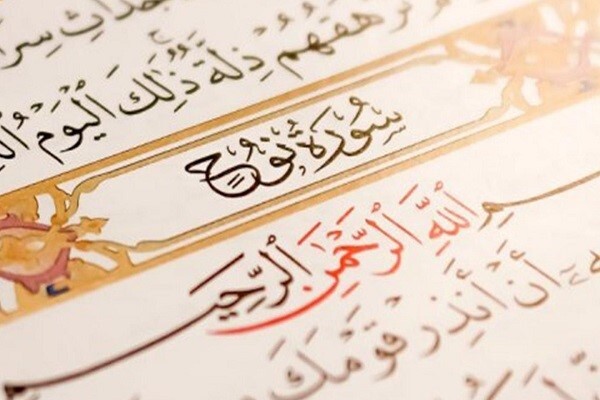 جْدَاثِ سِرَا
تَرْهَقُهُمْ ذِلَّةٌ ذَٰلِكَ ٱلْيَوْمُ
سُورَةُ نُوحٍ
سْمِ ٱللَّهِ ٱلرَّحْمَٰنِ ٱلرَّحِيمِ
أَنْ أَنذِرْ قَوْمَكَ